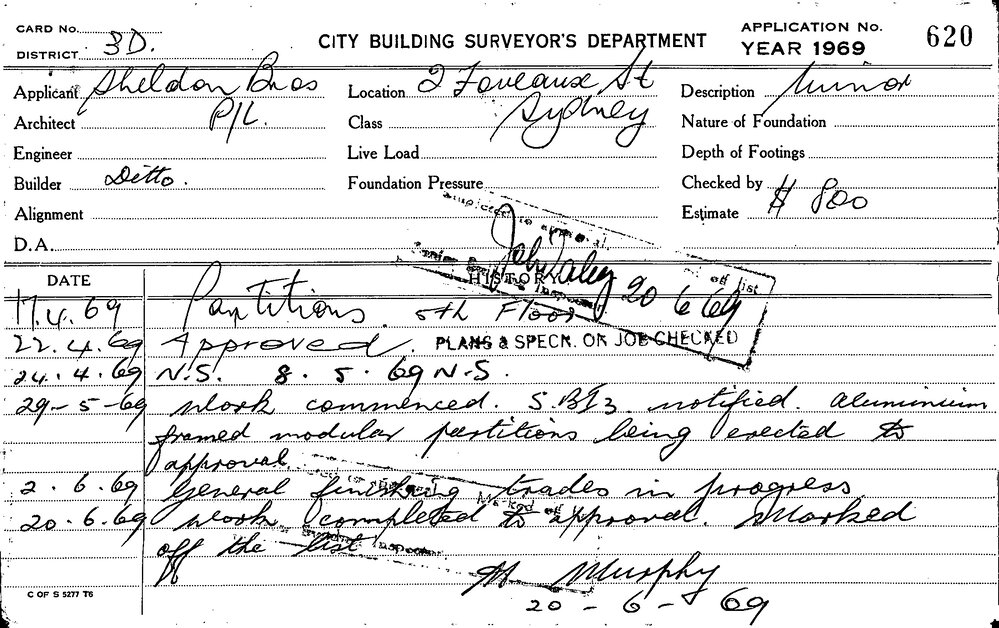 CARD No.
DISTRICT 3D.
CITY BUILDING SURVEYOR'S DEPARTMENT
APPLICATION No.
YEAR 1969
620
Applicant Sheldon Bros
Location 2 Foveaux St
Description Minor
Architect P/L.
Class Sydney
Nature of Foundation
Engineer
Live Load
Depth of Footings
Builder Ditto.
Foundation Pressure
Checked by
$ 800
Alignment
Estimate
D.A.
20 6 69
off list
DATE
HISTORY
17.4.69 Partitions. 5th Floor
22.4.69 Approved. PLANS & SPECN. OR JOB CHECKED
24.4.69 N.S. 8.5.69 N.S.
29-5-69 Work commenced. SBI3 notified. Aluminium
framed modular partitions being erected to
approval.
2.6.69 General finishing trades in progress
20.6.69 Work completed to approval. Marked
off the list
Murphy
20-6-69
Inspector
C OF S 5277 T6